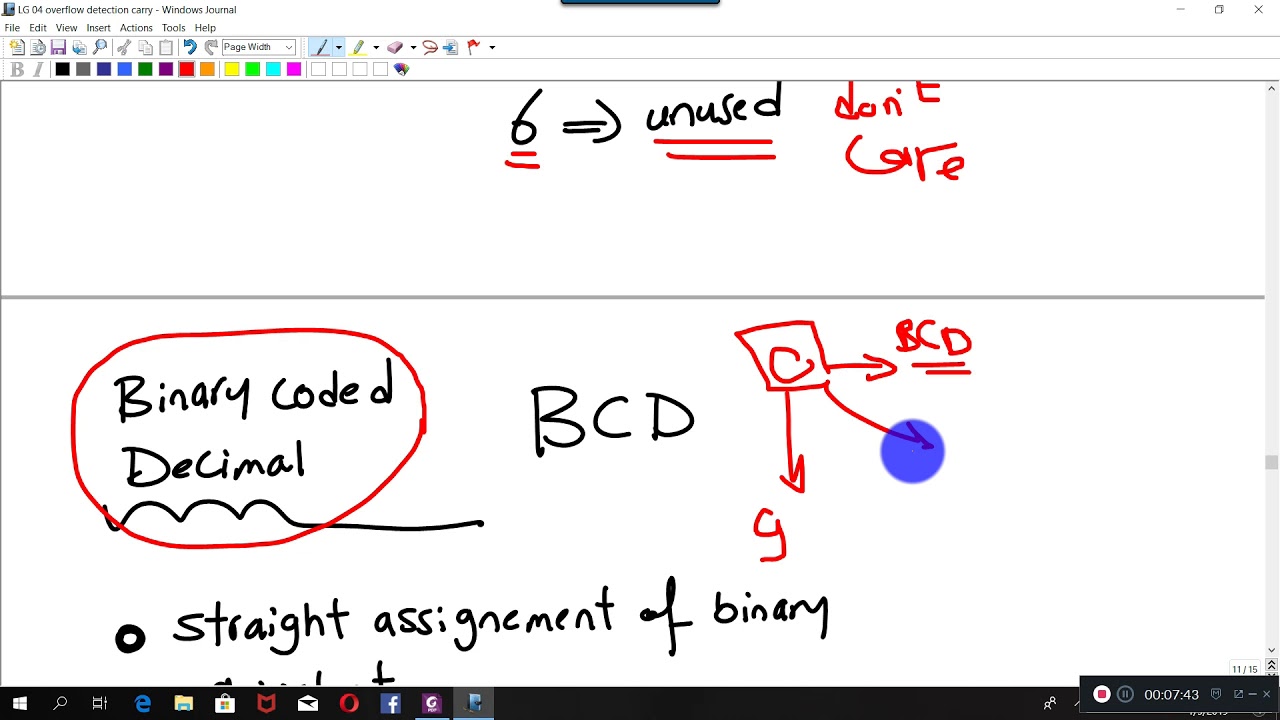 LG 04 overflow detection carry - Windows Journal
File Edit View Insert Actions Tools Help
Page Width
B I
6 ⇒ unused don't
care
Binary coded
Decimal
BCD
C → BCD
g
straight assignement of binary
11 / 15
00:07:43